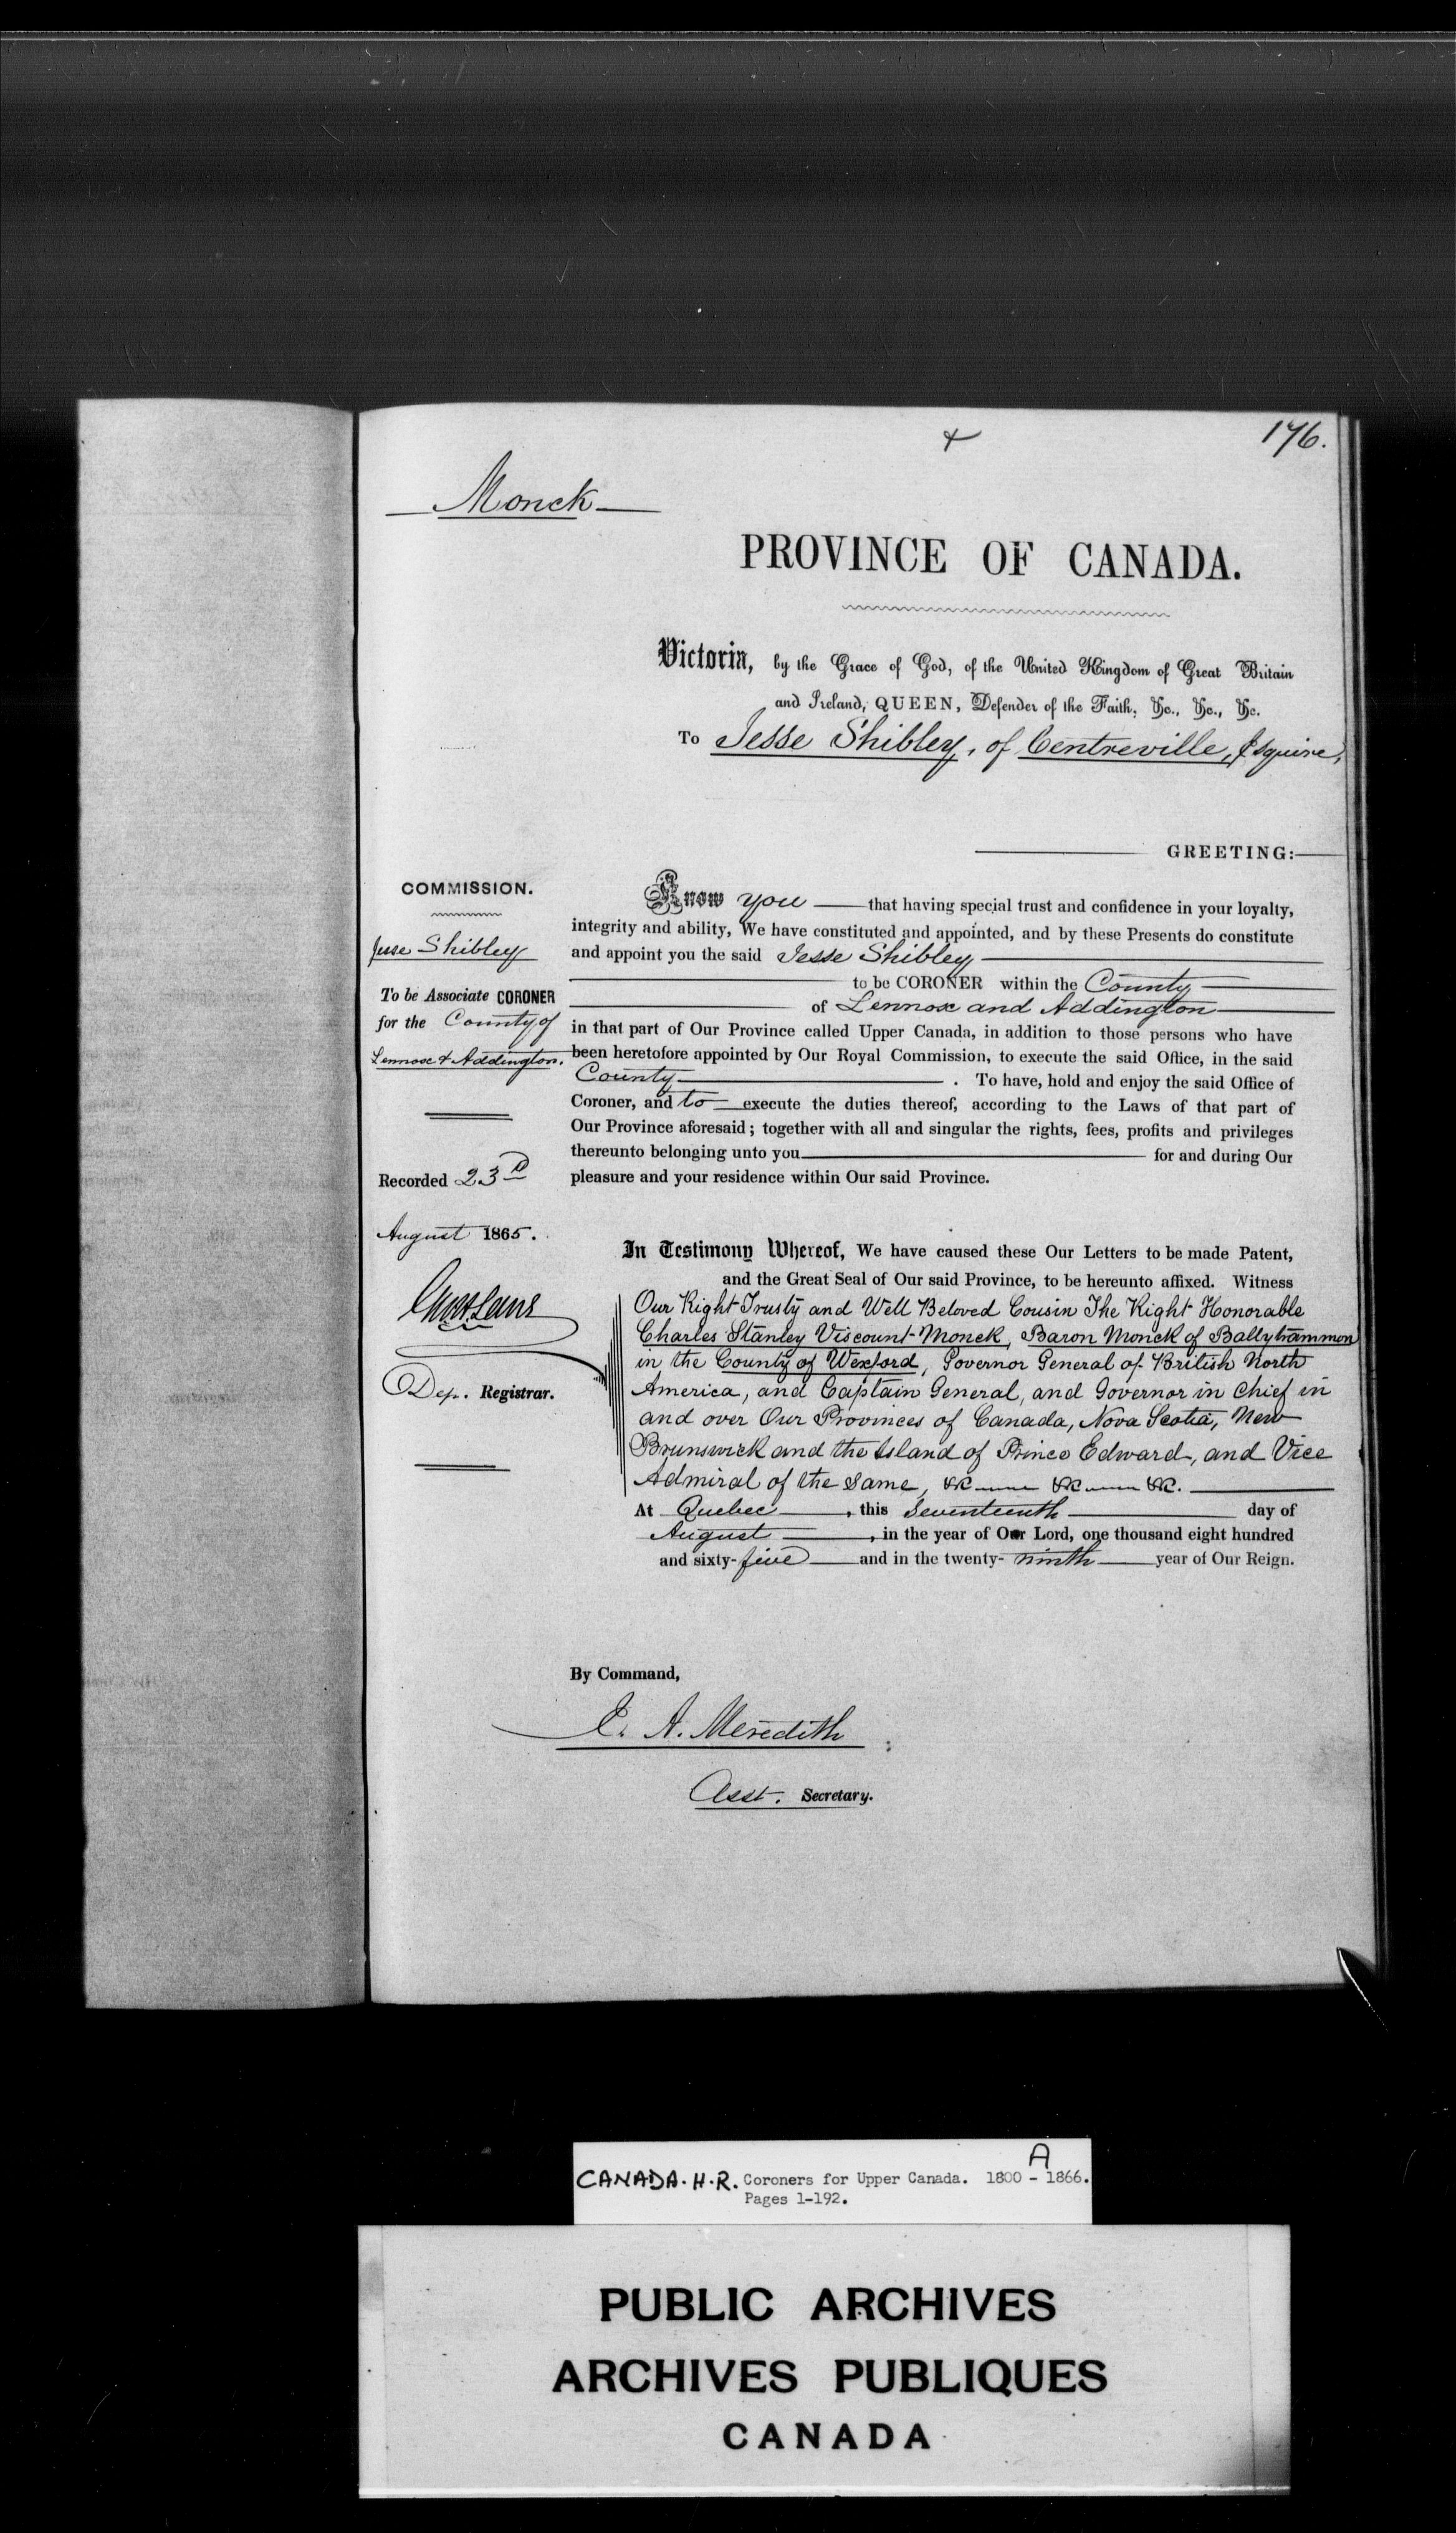 176.
Monck
PROVINCE OF CANADA.
Victoria, by the Grace of God, of the United Kingdom of Great Britain
and Ireland, QUEEN, Defender of the Faith, &c., &c., &c.
To Jesse Shibley, of Centreville, Esquire,
GREETING:
COMMISSION.
Jesse Shibley
To be Associate CORONER
for the County of
Lennox & Addington.
Recorded 23d
August 1865.
Dep. Registrar.
Know you that having special trust and confidence in your loyalty,
integrity and ability, We have constituted and appointed, and by these Presents do constitute
and appoint you the said Jesse Shibley
to be CORONER within the County
of Lennox and Addington
in that part of Our Province called Upper Canada, in addition to those persons who have
been heretofore appointed by Our Royal Commission, to execute the said Office, in the said
County . To have, hold and enjoy the said Office of
Coroner, and to execute the duties thereof, according to the Laws of that part of
Our Province aforesaid; together with all and singular the rights, fees, profits and privileges
thereunto belonging unto you for and during Our
pleasure and your residence within Our said Province.
In Testimony Whereof, We have caused these Our Letters to be made Patent,
and the Great Seal of Our said Province, to be hereunto affixed. Witness
Our Right Trusty and Well Beloved Cousin The Right Honorable
Charles Stanley Viscount Monck, Baron Monck of Ballytrammon
in the County of Wexford, Governor General of British North
America, and Captain General, and Governor in Chief in
and over Our Provinces of Canada, Nova Scotia, New
Brunswick and the Island of Prince Edward, and Vice
Admiral of the same, &c &c &c.
At Quebec, this Seventeenth day of
August, in the year of Our Lord, one thousand eight hundred
and sixty-five and in the twenty-ninth year of Our Reign.
By Command,
E. A. Meredith
Asst. Secretary.
CANADA. H.R. Coroners for Upper Canada. 1800 - 1866.
A
Pages 1-192.
PUBLIC ARCHIVES
ARCHIVES PUBLIQUES
CANADA